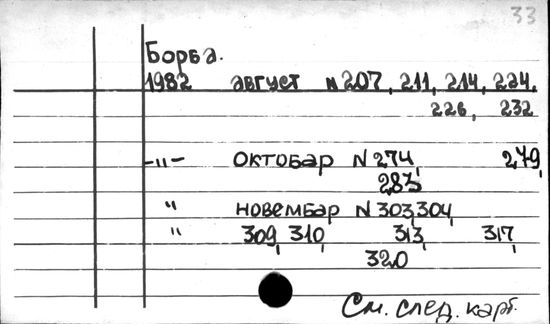 33
Борба.
1982 август N 207, 211, 214, 224,
226, 232
-"- октобар N 274, 279,
283
" новембар N 303, 304,
" 309, 310, 313, 317,
320
См. след. карт.